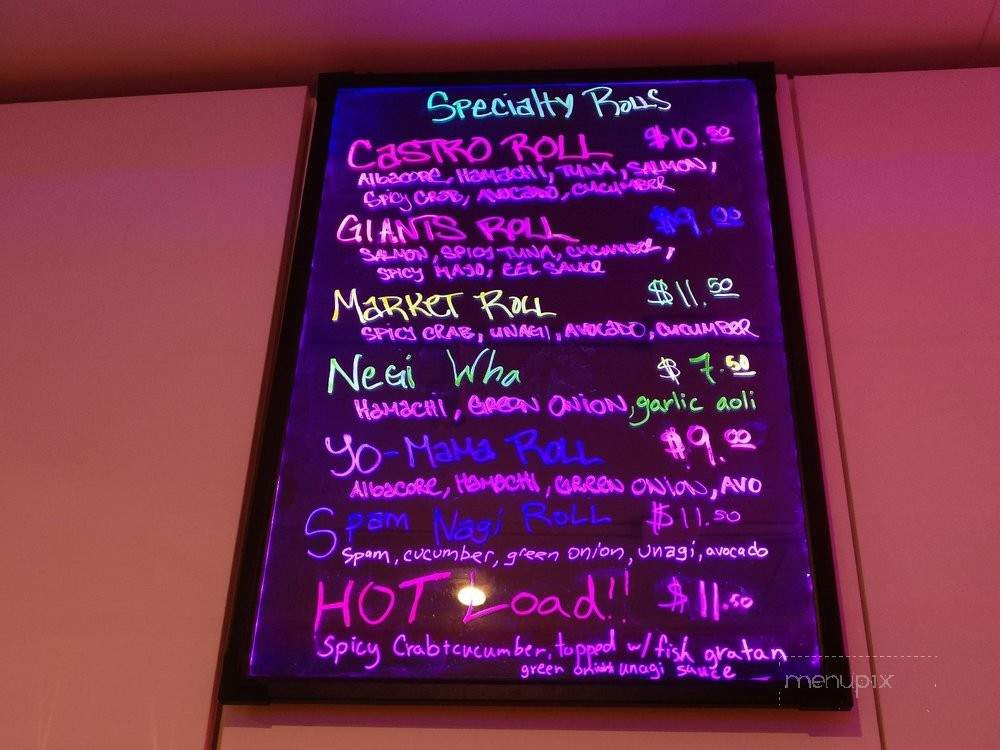 Specialty Rolls
CASTRO ROLL $10.50
Albacore, Hamachi, Tuna, Salmon,
Spicy Crab, Avocado, Cucumber
GIANTS ROLL $9.00
Salmon, Spicy Tuna, Cucumber,
Spicy Mayo, Eel Sauce
MARKET ROLL $11.50
Spicy Crab, Unagi, Avocado, Cucumber
Negi Wha $7.50
Hamachi, Green Onion, garlic aoli
Yo-Mama Roll $9.00
Albacore, Hamachi, Green Onion, Avo
Spam Nagi Roll $11.50
Spam, cucumber, green onion, unagi, avocado
HOT Load!! $11.50
Spicy Crab+cucumber, topped w/ fish gratan
green onion unagi sauce
menupix